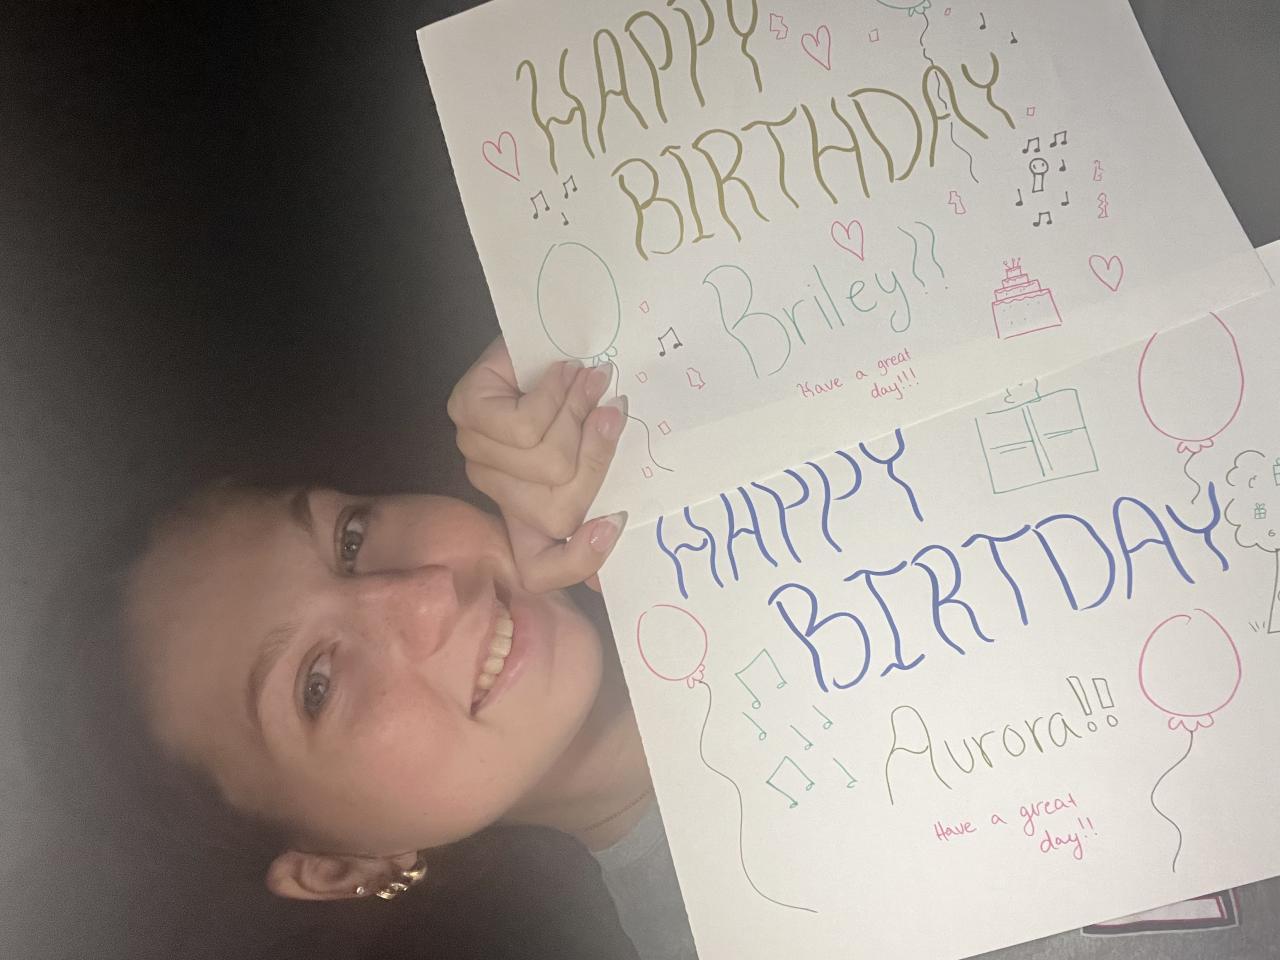 HAPPY
BIRTHDAY
Briley!!
Have a great
day!!!
HAPPY
BIRTDAY
Aurora!!
Have a great
day!!